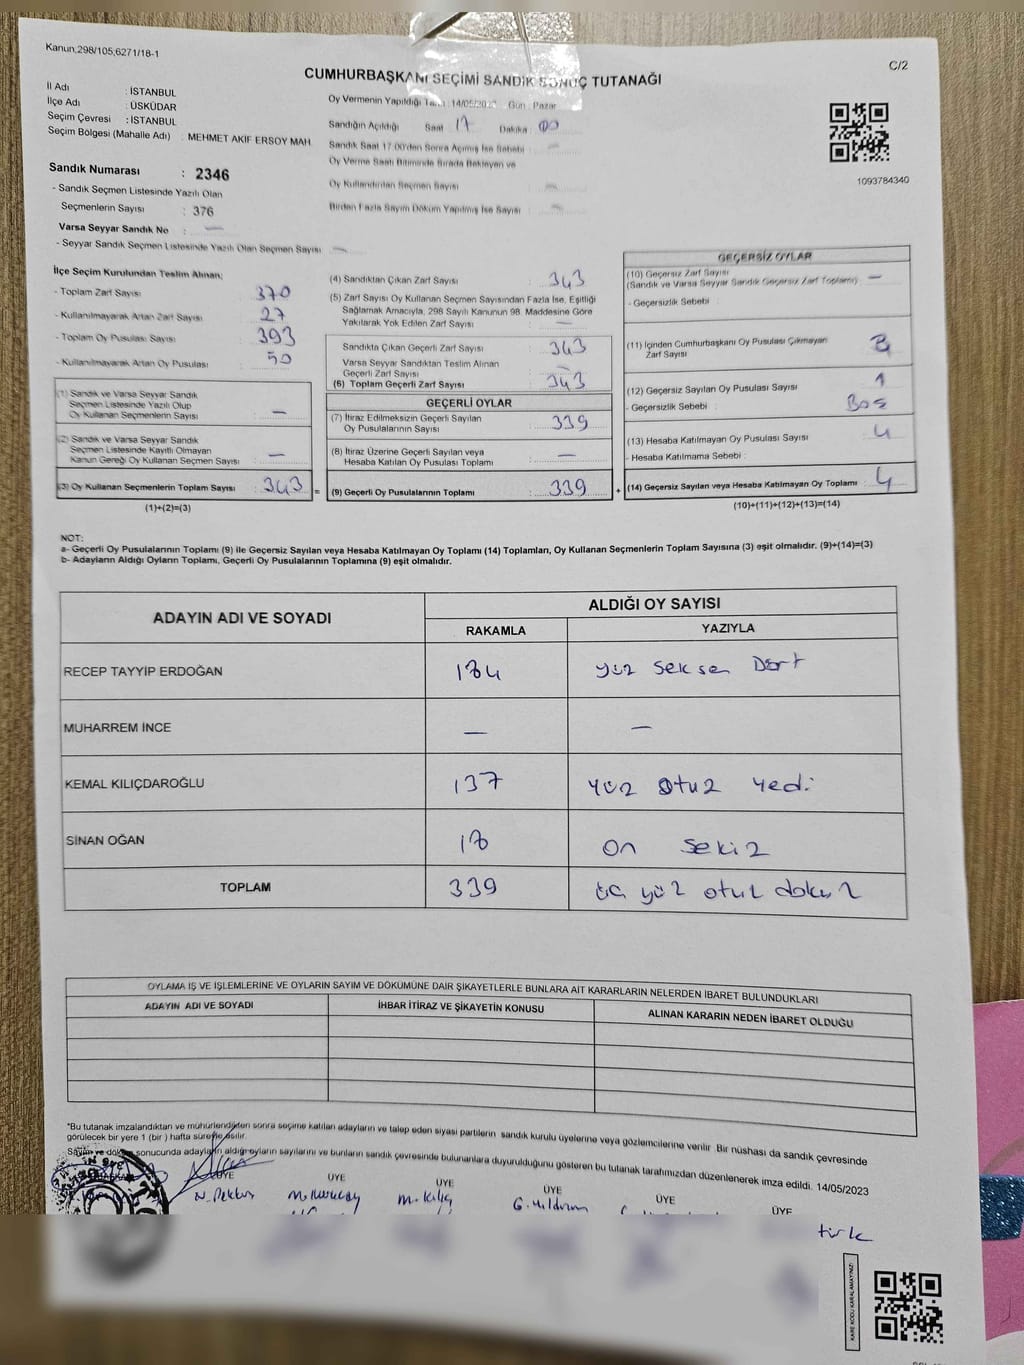 Kanun,298/105,6271/18-1
C/2
CUMHURBAŞKANI SEÇİMİ SANDIK SONUÇ TUTANAĞI
İl Adı : İSTANBUL
İlçe Adı : ÜSKÜDAR
Seçim Çevresi : İSTANBUL
Seçim Bölgesi (Mahalle Adı) : MEHMET AKİF ERSOY MAH
Oy Vermenin Yapıldığı 14/05/2023 Gün : Pazar
Sandığın Açıldığı Saat 17 Dakika : 00
Sandık Saat 17.00'den Sonra Açılmış İse Sebebi : —
Oy Verme Saati Bitiminde Sırada Bekleyen ve
Oy Kullandırılan Seçmen Sayısı : —
Birden Fazla Sayım Döküm Yapılmış İse Sayısı : —
1093784340
Sandık Numarası : 2346
- Sandık Seçmen Listesinde Yazılı Olan
Seçmenlerin Sayısı : 376
Varsa Seyyar Sandık No : —
- Seyyar Sandık Seçmen Listesinde Yazılı Olan Seçmen Sayısı : —
İlçe Seçim Kurulundan Teslim Alınan;
- Toplam Zarf Sayısı : 370
- Kullanılmayarak Artan Zarf Sayısı : 27
- Toplam Oy Pusulası Sayısı : 393
- Kullanılmayarak Artan Oy Pusulası : 50
(1) Sandık ve Varsa Seyyar Sandık
Seçmen Listesinde Yazılı Olup
Oy Kullanan Seçmenlerin Sayısı : —
(2) Sandık ve Varsa Seyyar Sandık
Seçmen Listesinde Kayıtlı Olmayan
Kanun Gereği Oy Kullanan Seçmen Sayısı : —
(3) Oy Kullanan Seçmenlerin Toplam Sayısı : 343 =
(1)+(2)=(3)
(4) Sandıktan Çıkan Zarf Sayısı : 343
(5) Zarf Sayısı Oy Kullanan Seçmen Sayısından Fazla İse, Eşitliği
Sağlamak Amacıyla, 298 Sayılı Kanunun 98. Maddesine Göre
Yakılarak Yok Edilen Zarf Sayısı : —
Sandıkta Çıkan Geçerli Zarf Sayısı : 343
Varsa Seyyar Sandıktan Teslim Alınan
Geçerli Zarf Sayısı : —
(6) Toplam Geçerli Zarf Sayısı : 343
GEÇERLİ OYLAR
(7) İtiraz Edilmeksizin Geçerli Sayılan
Oy Pusulalarının Sayısı : 339
(8) İtiraz Üzerine Geçerli Sayılan veya
Hesaba Katılan Oy Pusulası Toplamı : —
(9) Geçerli Oy Pusulalarının Toplamı : 339 +
GEÇERSİZ OYLAR
(10) Geçersiz Zarf Sayısı
(Sandık ve Varsa Seyyar Sandık Geçersiz Zarf Toplamı) : —
- Geçersizlik Sebebi :
(11) İçinden Cumhurbaşkanı Oy Pusulası Çıkmayan
Zarf Sayısı : 3
(12) Geçersiz Sayılan Oy Pusulası Sayısı : 1
- Geçersizlik Sebebi : Boş
(13) Hesaba Katılmayan Oy Pusulası Sayısı : 4
- Hesaba Katılmama Sebebi :
(14) Geçersiz Sayılan veya Hesaba Katılmayan Oy Toplamı : 4
(10)+(11)+(12)+(13)=(14)
NOT:
a- Geçerli Oy Pusulalarının Toplamı (9) ile Geçersiz Sayılan veya Hesaba Katılmayan Oy Toplamı (14) Toplamları, Oy Kullanan Seçmenlerin Toplam Sayısına (3) eşit olmalıdır. (9)+(14)=(3)
b- Adayların Aldığı Oyların Toplamı, Geçerli Oy Pusulalarının Toplamına (9) eşit olmalıdır.
ADAYIN ADI VE SOYADI ALDIĞI OY SAYISI
RAKAMLA YAZIYLA
RECEP TAYYİP ERDOĞAN 184 yüz seksen Dört
MUHARREM İNCE — —
KEMAL KILIÇDAROĞLU 137 yüz otuz yedi
SİNAN OĞAN 18 on sekiz
TOPLAM 339 üç yüz otuz dokuz
OYLAMA İŞ VE İŞLEMLERİNE VE OYLARIN SAYIM VE DÖKÜMÜNE DAİR ŞİKAYETLERLE BUNLARA AİT KARARLARIN NELERDEN İBARET BULUNDUKLARI
ADAYIN ADI VE SOYADI İHBAR İTİRAZ VE ŞİKAYETİN KONUSU ALINAN KARARIN NEDEN İBARET OLDUĞU
*Bu tutanak imzalandıktan ve mühürlendikten sonra seçime katılan adayların ve talep eden siyasi partilerin sandık kurulu üyelerine veya gözlemcilerine verilir. Bir nüshası da sandık çevresinde
görülecek bir yere 1 (bir) hafta süreyle asılır.
Sayım ve döküm sonucunda adayların aldığı oyların sayılarını ve bunların sandık çevresinde bulunanlara duyurulduğunu gösteren bu tutanak tarafımızdan düzenlenerek imza edildi. 14/05/2023
ÜYE ÜYE ÜYE ÜYE ÜYE ÜYE
M. Kılıç G. Yıldırım
türk
KARE KODU KARALAMAYINIZ!